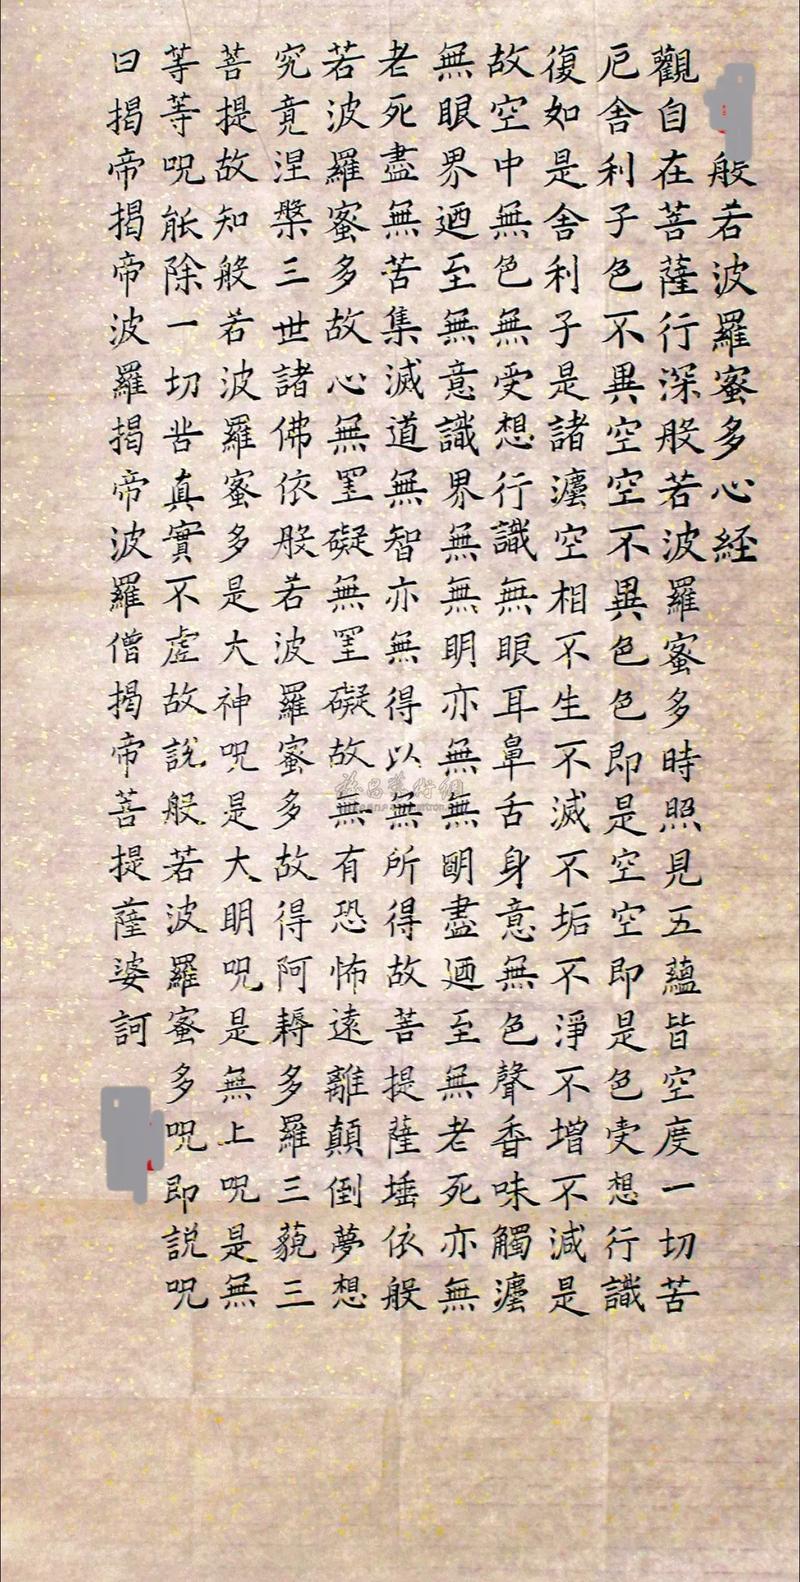 般若波羅蜜多心経
觀自在菩薩行深般若波羅蜜多時照見五蘊皆空度一切苦
厄舍利子色不異空空不異色色即是空空即是色受想行識
復如是舍利子是諸灋空相不生不滅不垢不淨不增不減是
故空中無色無受想行識無眼耳鼻舌身意無色聲香味觸灋
無眼界迺至無意識界無無明亦無無朙盡迺至無老死亦無
老死盡無苦集滅道無智亦無得以無所得故菩提薩埵依般
若波羅蜜多故心無罣礙無罣礙故無有恐怖遠離顛倒夢想
究竟涅槃三世諸佛依般若波羅蜜多故得阿耨多羅三藐三
菩提故知般若波羅蜜多是大神呪是大明呪是無上呪是無
等等呪能除一切苦真實不虛故說般若波羅蜜多呪即說呪
曰揭帝揭帝波羅揭帝波羅僧揭帝菩提薩婆訶